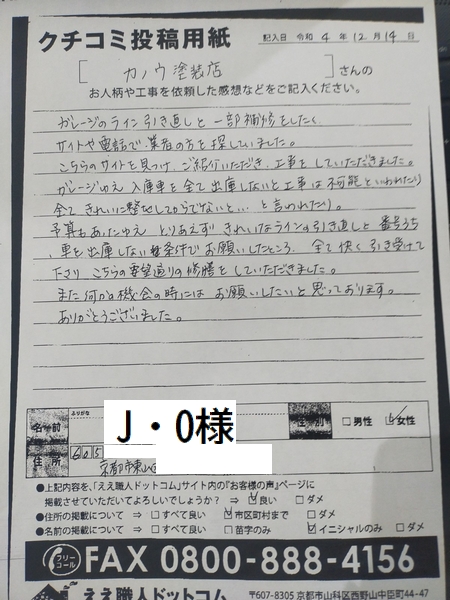 クチコミ投稿用紙
記入日 令和 4 年 12 月 14 日
[ カノウ塗装店 ] さんの
お人柄や工事を依頼した感想などをご記入ください。
ガレージのライン引き直しと一部補修をしたく、
サイトや電話で業者の方を探していました。
こちらのサイトを見つけ、ご紹介いただき、工事をしていただきました。
ガレージゆえ 入庫車を全て出庫しないと工事は不可能といわれたり
全てきれいに整地してからでないと… と言われたり。
予算もあったゆえ とりあえず きれいなラインの引き直しと 番号うち
、車を出庫しない条件でお願いしたところ、全て快く引き受けて
下さり こちらの希望通りの修繕をしていただきました。
また何か機会の時には お願いしたいと思っております。
ありがとうございました。
ふりがな
名前
J・O様
性別 □男性 ☑女性
住所
605
京都市東山
●上記内容を、「ええ職人ドットコム」サイト内の『お客様の声』ページに
掲載させていただいてよろしいでしょうか? ⇒ ☑良い □ダメ
●住所の掲載について ⇒ □すべて良い ☑市区町村まで □ダメ
●名前の掲載について ⇒ □すべて良い □苗字のみ ☑イニシャルのみ □ダメ
フリーコール FAX 0800-888-4156
ええ職人ドットコム 〒607-8305 京都市山科区西野山中臣町44-47